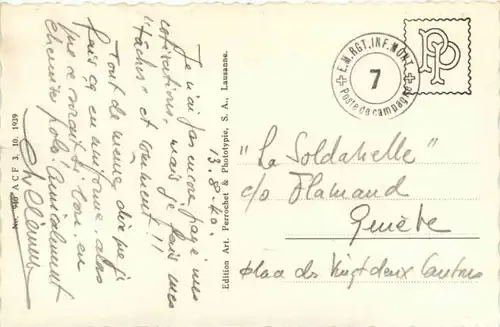 13-8-40
Je n'ai pas encore payé mes
cotisations, mais je fais mes
"tâches" et comment!!
Tout de même dire que je
fais ça en uniforme, alors
que ce serait si bon, en
chemise polo! Amicalement
No. A C F T. 10. 1939
Edition Art. Perrochet & Phototypie, S. A., Lausanne.
E.M. RGT. INF. MONT.
7
Poste de campagne
PP
"La Soldanelle"
c/o Flamand
Genève
place des Vingt deux Cantons